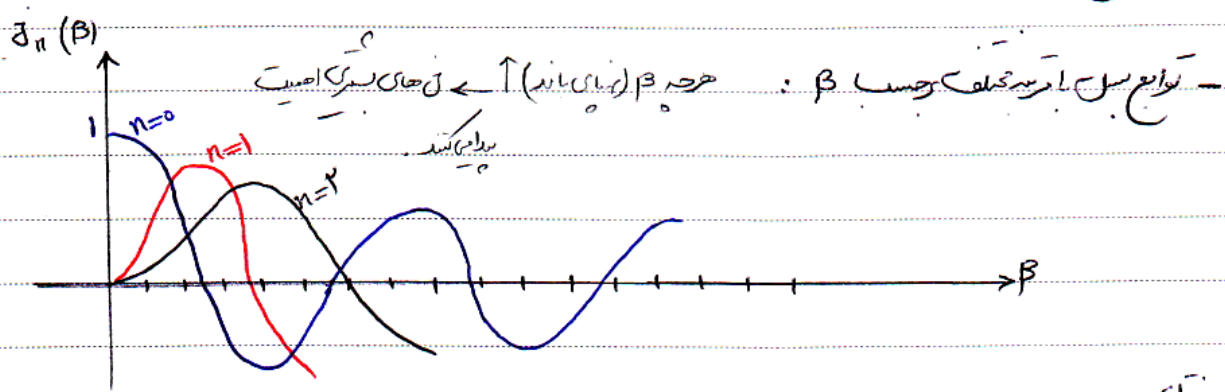 Jₙ(β)
- توابع بسل با مرتبه مختلف برحسب β : هرچه β (پهنای باند) ↑ ← n های بیشتری اهمیت
پیدا می‌کنند.
1
n=0
n=1
n=۲
β